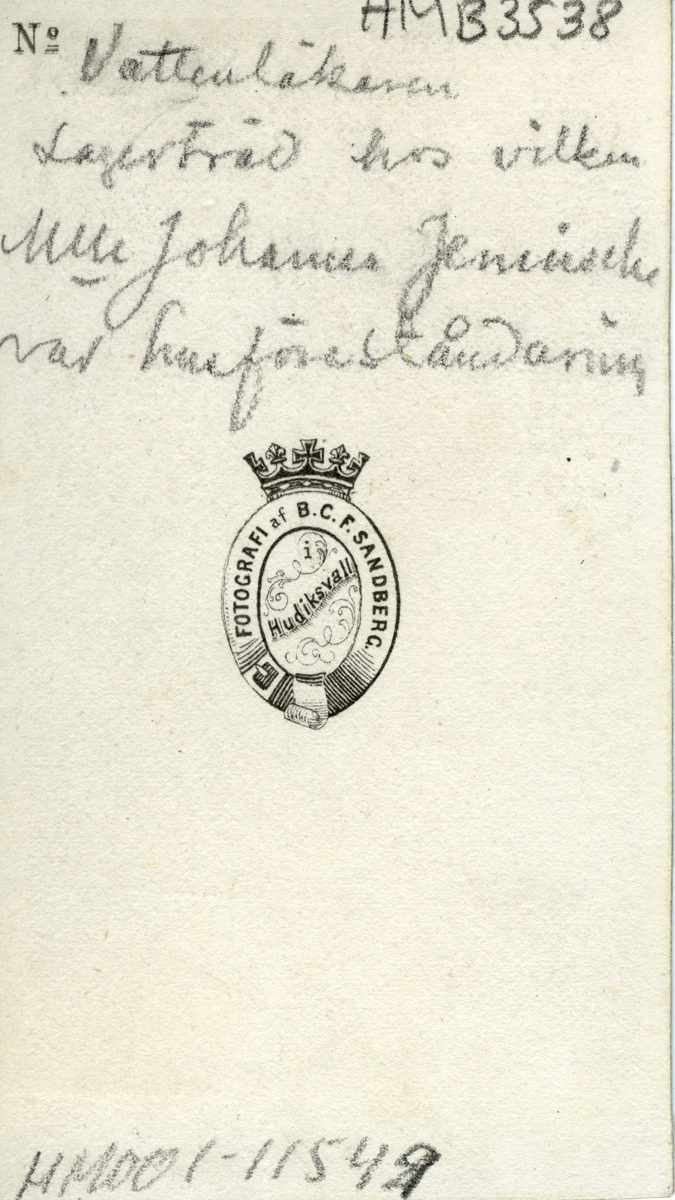 HMB3538
Nº Vattenläkaren
Lagerträd hos vilken
Mlle Johanna
var husföreståndarinn
FOTOGRAFI af B. C. F. SANDBERG.
i
Hudiksvall
HM001-11549